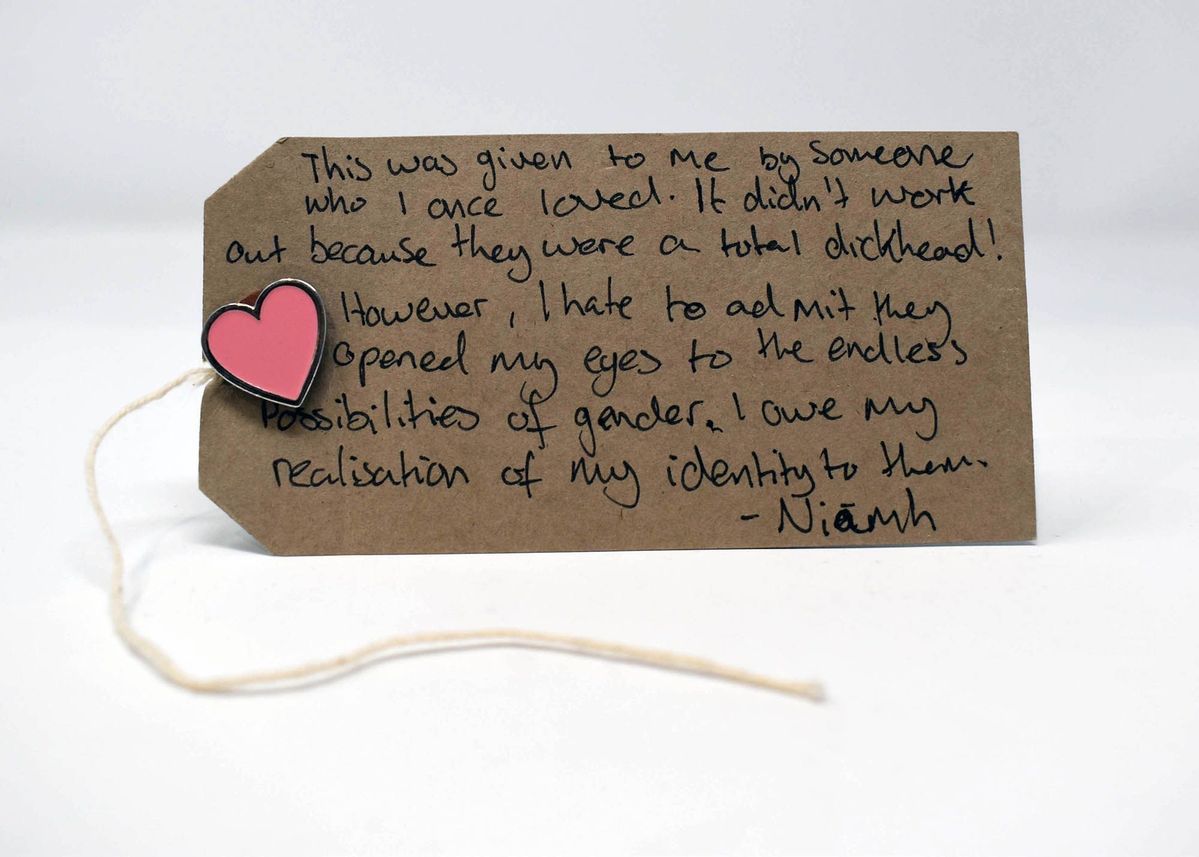 This was given to me by someone
who I once loved. It didn't work
out because they were a total dickhead!
However, I hate to admit they
opened my eyes to the endless
possibilities of gender. I owe my
realisation of my identity to them.
- Niāmh